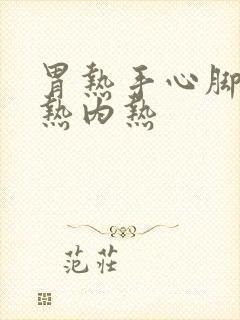 胃热手心脚
热内热
范莊